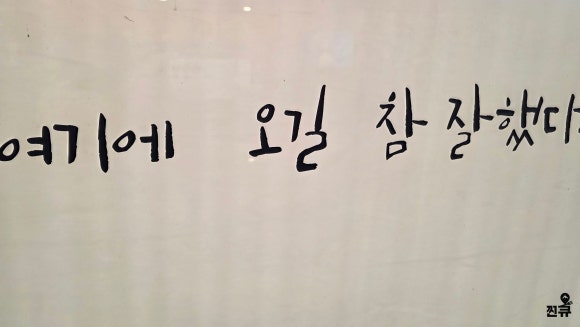 여기에 오길 참 잘했다
찐큐